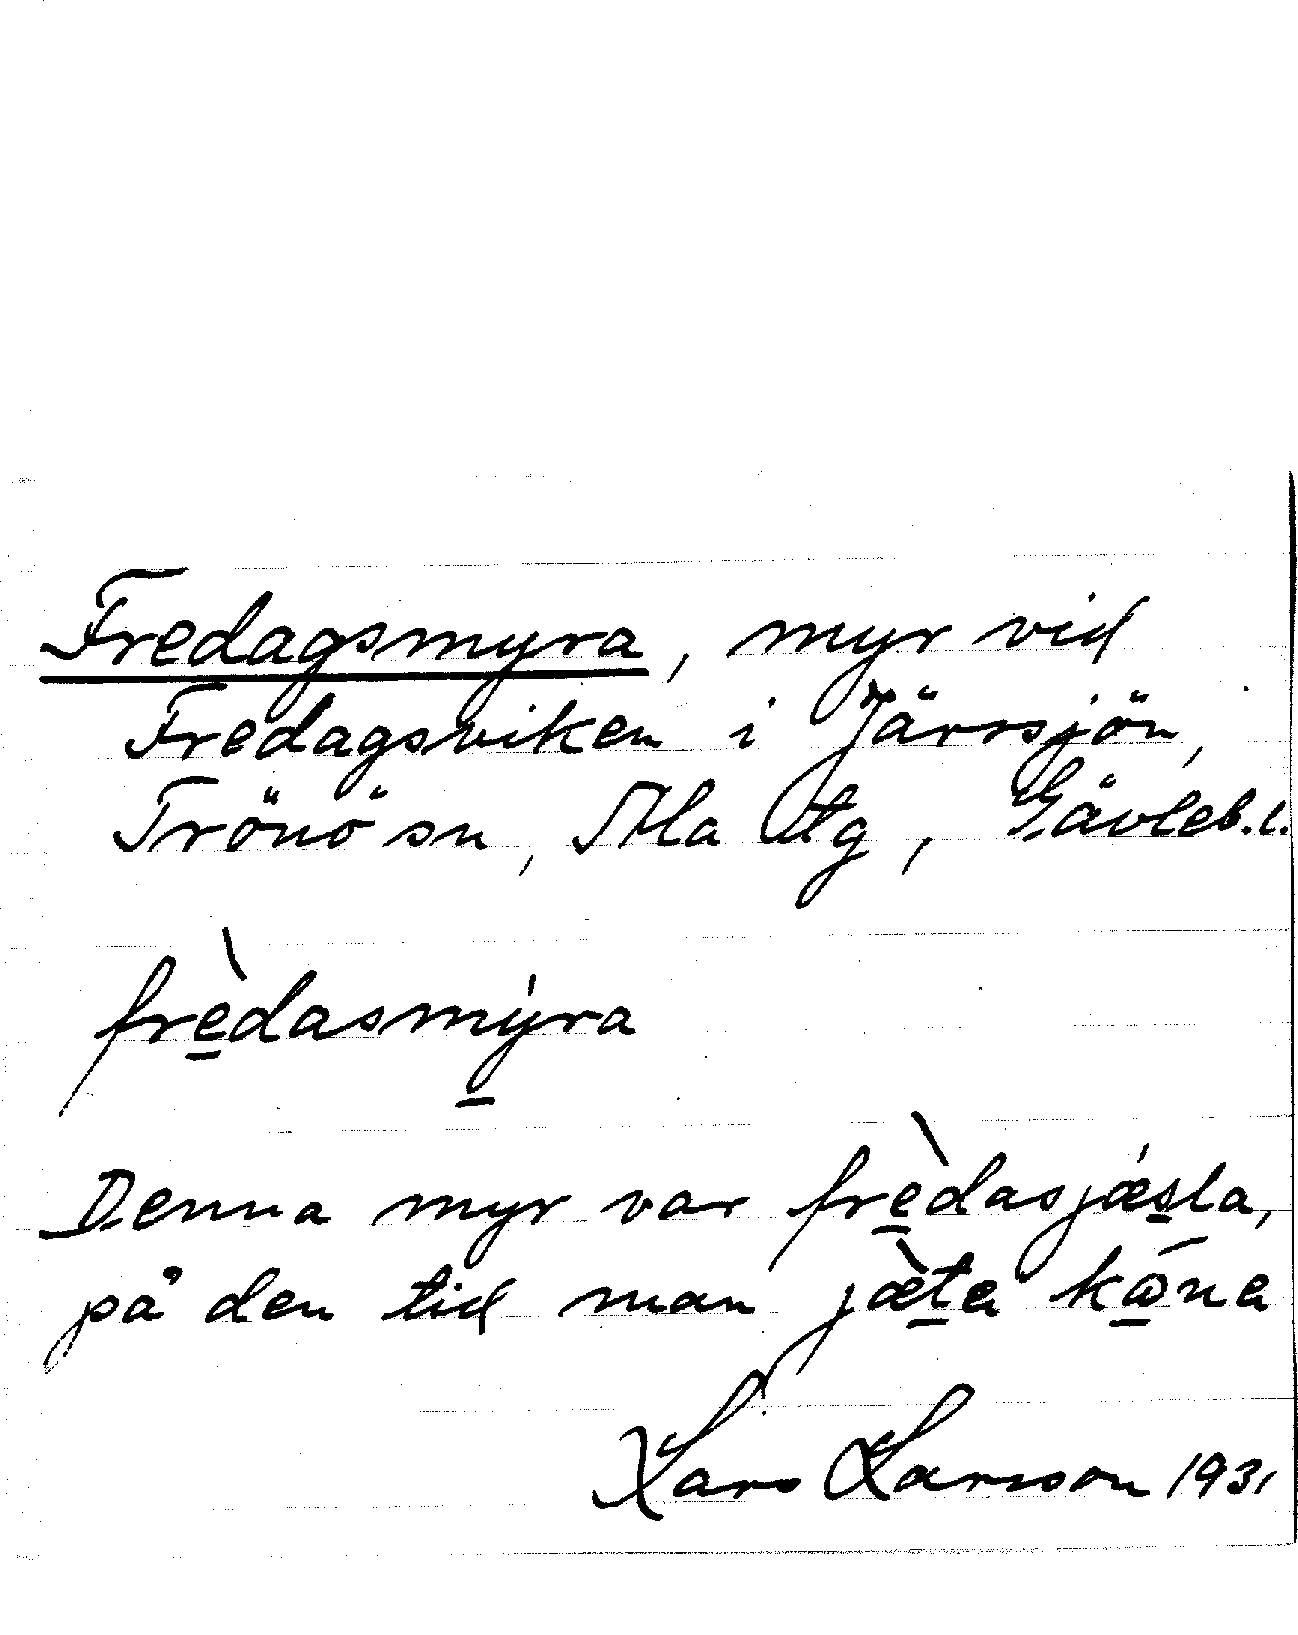 Fredagsmyra, myr vid
Fredagsviken i Järvsjön,
Trönö sn, Ala tg, Gävleb. l.
frèdasmýra
Denna myr var frèdasjæsla,
på den tid man jæ̀ta kɷna
Lars Larsson 1931